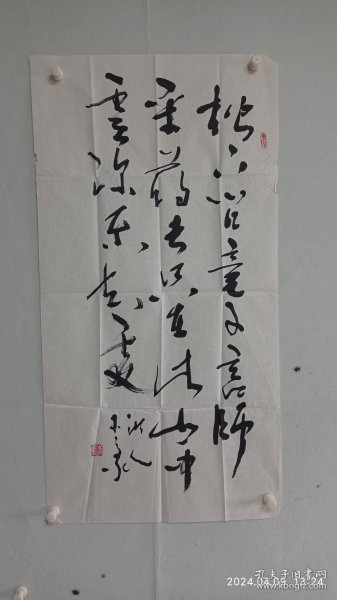 松下问童子言师
采药去只在此山中
云深不知处
2024.03.09 13:24
孔夫子旧书网
www.kongfz.com